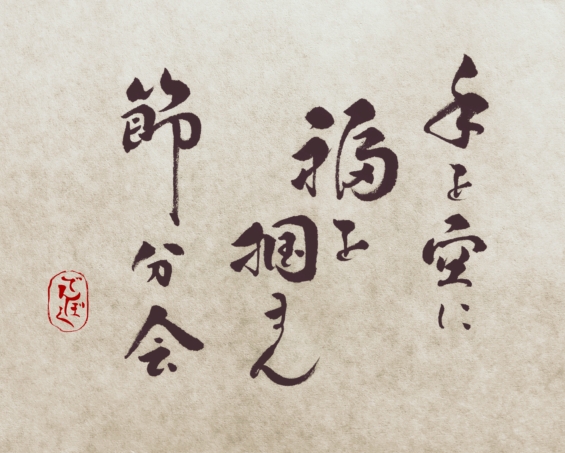 手を空に
福を
掴まん
節分会
でんぼく